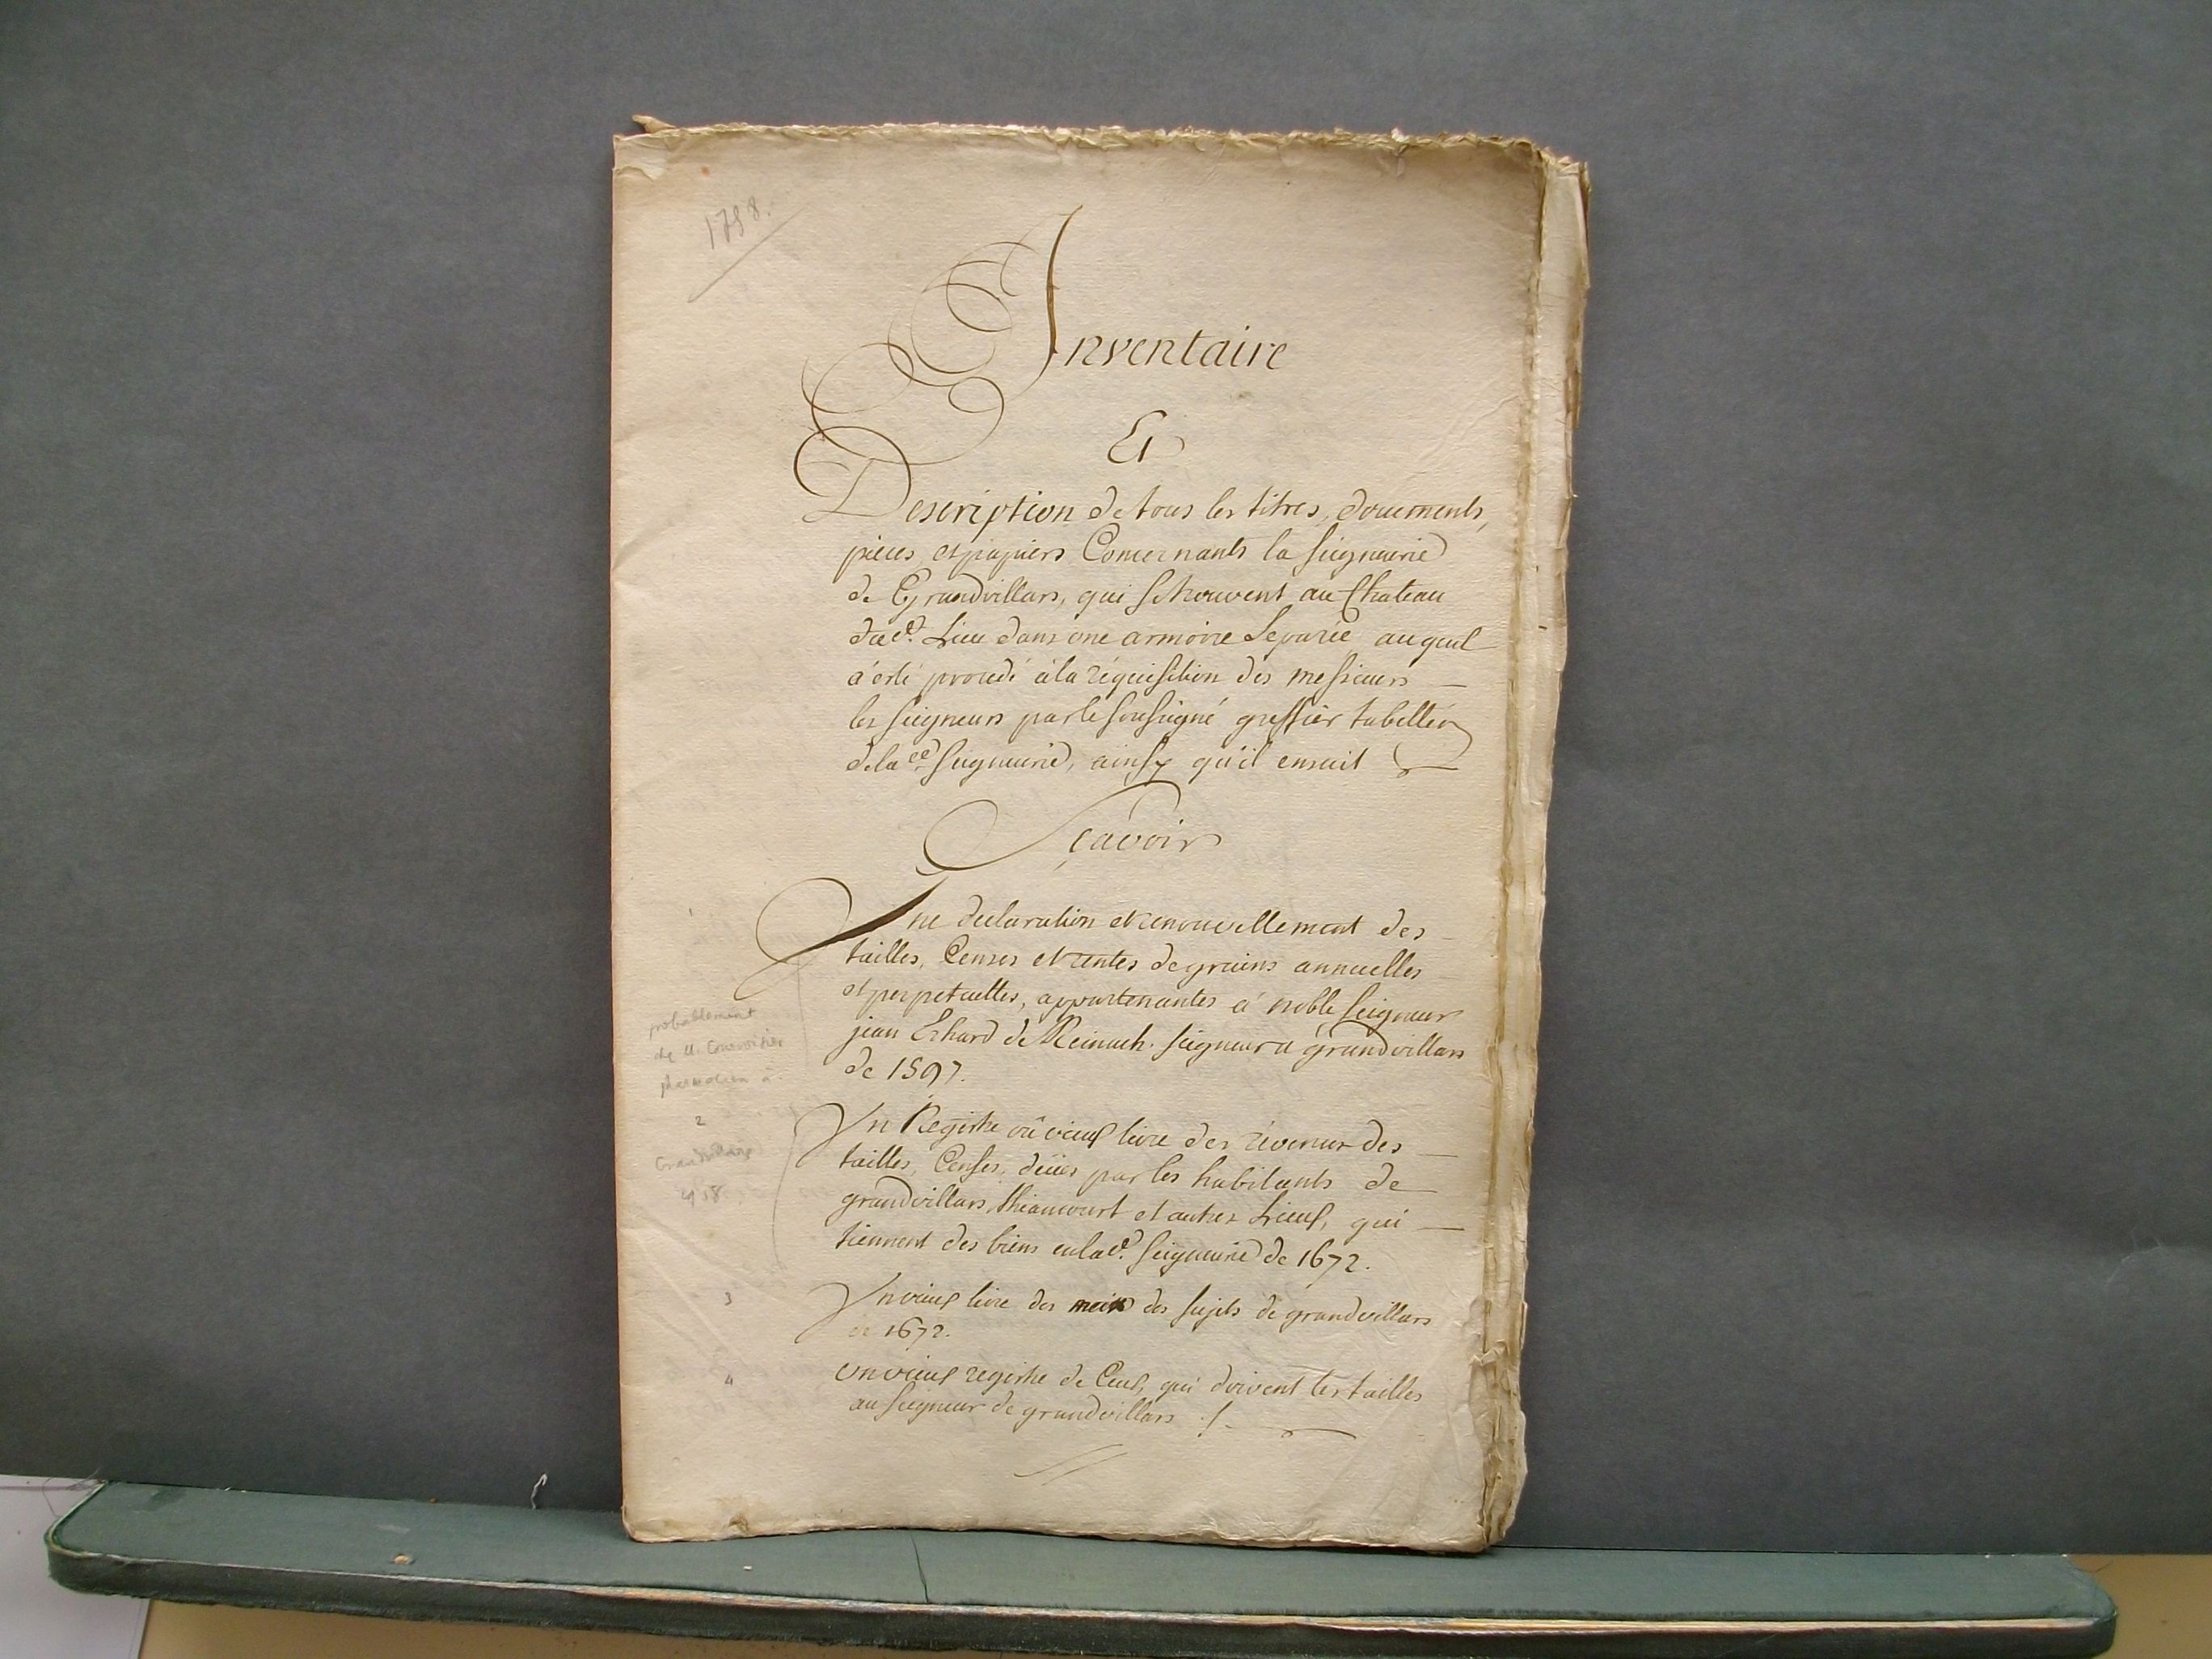 1788.
Inventaire
Et
Description de tous les titres, documents,
pieces, et papiers Concernants la seigneurie
de Grandvillars, qui se trouvent au Chateau
dud.t Lieu dans une armoire Separée auquel
a esté procedé à la réquisition des messieurs
les seigneurs par le soussigné greffier tabellion
de la Seigneurie, ainsy qu'il ensuit
Sçavoir
1
Une declaration et renouvellement des
tailles, Censes et rentes de grains annuelles
et perpetuelles, appartenantes a noble seigneur
jean Erhard de Reinach seigneur a grandvillars
de 1597.
probablement
de M.
à
2
Grandvillars
Un Registre ou vieux livre des révenus des
tailles, Censes, deües par les habitants de
grandvillars, thiancourt et autres Lieux, qui
tiennent des biens en lad.t seigneurie de 1672.
3
Un vieux livre des meix des sujets de grandvillars
de 1672.
4
un vieux registre de Ceux, qui doivent les tailles
au seigneur de grandvillars ./.